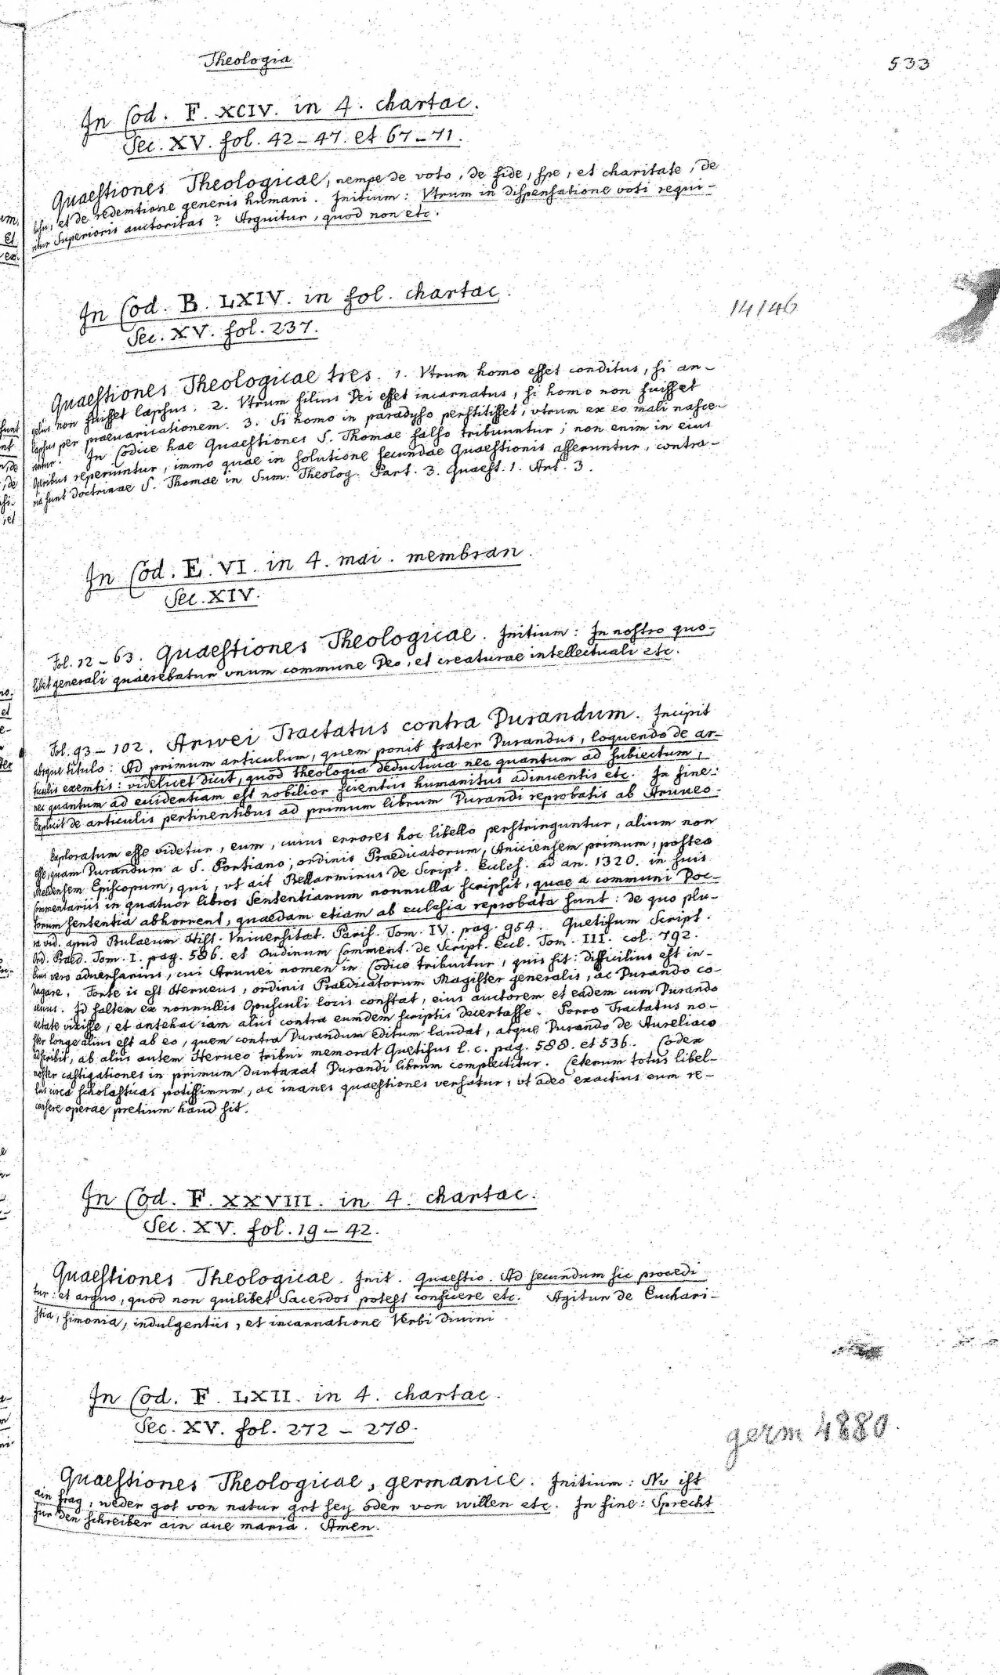 Theologia
533
In Cod. F. XCIV. in 4. chartac.
Sec. XV. fol. 42–47. et 67–71.
Quaestiones Theologicae, nempe de voto, de fide, spe, et charitate, de
et de redemtione generis humani. Initium: Vtrum in dispensatione voti requi-
Superioris auctoritas? Arguitur, quod non etc.
In Cod. B. LXIV. in fol. chartac.
14146
Sec. XV. fol. 237.
Quaestiones Theologicae tres. 1. Vtrum homo esset conditus, si an-
non fuisset lapsus. 2. Vtrum filius Dei esset incarnatus, si homo non fuisset
lapsus per praeuaricationem. 3. Si homo in paradyso perstitisset, vtrum ex eo mali nasce-
In Codice hae Quaestiones S. Thomae falso tribuuntur; non enim in eius
operibus reperiuntur, immo quae in solutione secundae Quaestionis afferuntur, contra-
sunt doctrinae S. Thomae in Sum. Theolog. Part. 3. Quaest. 1. Art. 3.
In Cod. E. VI. in 4. mai. membran.
Sec. XIV.
Fol. 12–63. Quaestiones Theologicae. Initium: In nostro quo-
libet generali quaerebatur vnum commune Deo, et creaturae intellectuali etc.
Fol. 93–102. Arwei Tractatus contra Durandum. Incipit
absque titulo: Ad primum articulum, quem ponit frater Durandus, loquendo de ar-
ticulis exemtis: videlicet dicit, quod theologia deductiua nec quantum ad subiectum,
nec quantum ad euidentiam est nobilior scientiis humanitus adinuentis etc. In fine:
Explicit de articulis pertinentibus ad primum librum Durandi reprobatis ab Arvueo.
Exploratum esse videtur, eum, cuius errores hoc libello perstringuntur, alium non
esse, quam Durandum a S. Portiano, ordinis Praedicatorum, Aniciensem primum, postea
Meldensem Episcopum, qui, vt ait Bellarminus de Script. Eccles. ad an. 1320. in suis
Commentariis in quatuor libros Sententiarum nonnulla scripsit, quae a communi Doc-
torum sententia abhorrent, quaedam etiam ab ecclesia reprobata sunt: de quo plu-
ra vid. apud Bulaeum Hist. Vniuersitat. Paris. Tom. IV. pag. 954. Quetifum Script.
Ord. Praed. Tom. I. pag. 586. et Oudinum Comment. de Script. Eccl. Tom. III. col. 792.
vero aduersarius, cui Arvuei nomen in Codice tribuitur, quis sit, difficilius est in-
dagare. Forte is est Herueus, ordinis Praedicatorum Magister generalis, ac Durando co-
Id saltem ex nonnullis Opusculi locis constat, eius auctorem et eadem cum Durando
aetate vixisse, et antehac iam aliis contra eumdem scriptis decertasse. Porro Tractatus no-
ster longe alius est ab eo, quem contra Durandum editum laudat, atque Durando de Aureliaco
adscribit, ab aliis autem Herueo tribui memorat Quetifus l. c. pag. 588. et 536. Codex
noster castigationes in primum duntaxat Durandi librum complectitur. Ceterum totus libel-
lus circa scholasticas potissimum, ac inanes quaestiones versatur, vt adeo exactius eum re-
censere operae pretium haud sit.
In Cod. F. XXVIII. in 4. chartac.
Sec. XV. fol. 19–42.
Quaestiones Theologicae. Init. Quaestio. Ad secundum sic procedi
tur: et arguo, quod non quilibet Sacerdos potest conficere etc. Agitur de Euchari-
stia, simonia, indulgentiis, et incarnatione Verbi Diuini
In Cod. F. LXII. in 4. chartac.
Sec. XV. fol. 272–278.
germ 4880.
Quaestiones Theologicae, germanice. Initium: Nv ist
ain frag, weder got von natur got sey oder von willen etc. In fine: Sprecht
fur den schreiber ain aue maria. Amen.